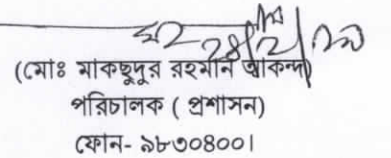 (মোঃ মাকছুদুর রহমান আকন্দ)
পরিচালক ( প্রশাসন)
ফোন- ৯৮৩০৪০০।